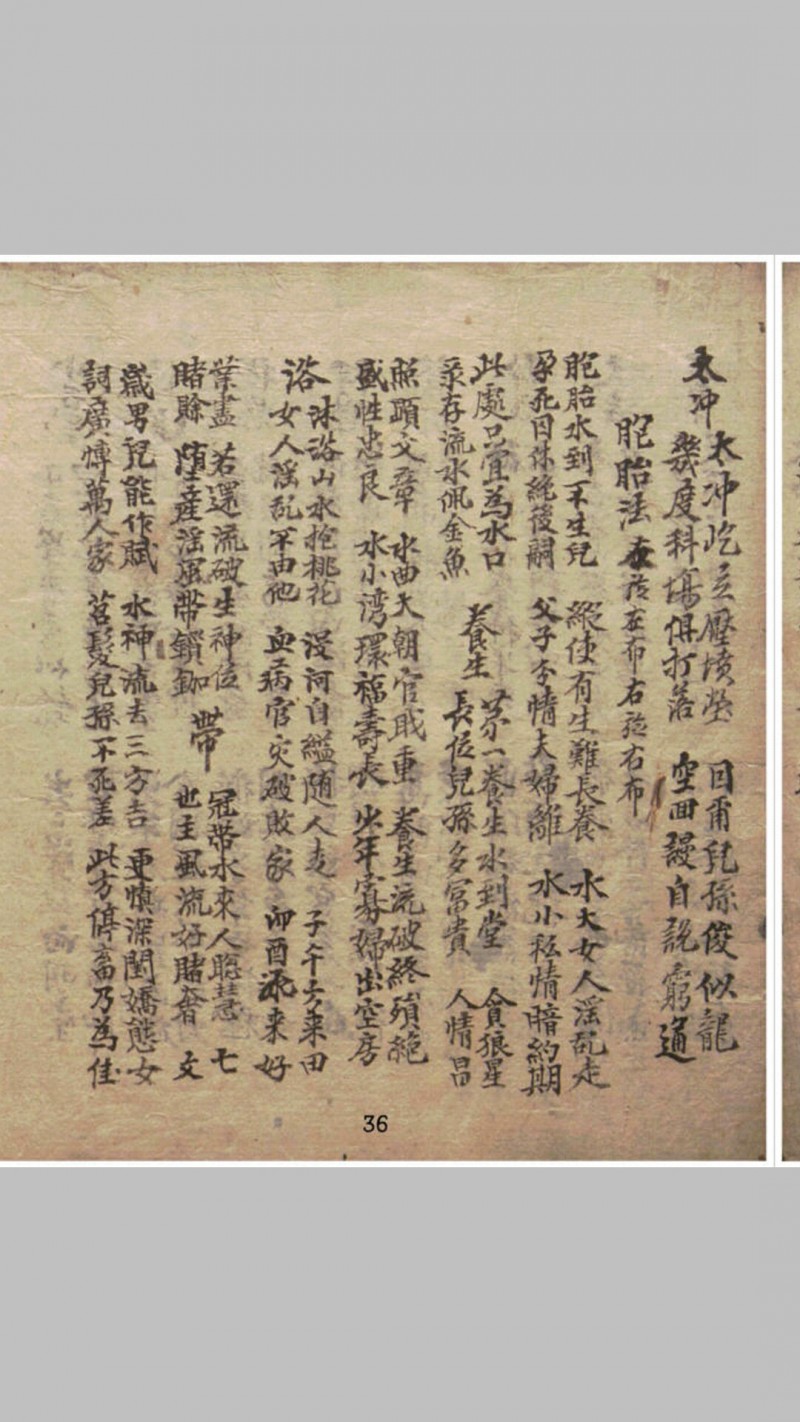 太冲 太冲屹立壓墳塋 因甭兒孫俊似龍
幾度科塲俱打落 空回謾自説窮通
胞胎法 左布右 右布
胞胎水到不生兒 縱使有生難長養 水大女人淫乱走
孕死因休絶後嗣 父子 情夫婦離 水小私情暗約期
此處只宜為水口 養生 苐一養生水到堂 貪狼星
彔存流水佩金魚 長位兒孫多富貴 人情昌
照顕文章 水曲大朝官戝重 養生流破終須絶
盛性忠良 水小湾環福壽長 少年寡婦出空房
浴 沐浴山水抱桃花 沒河自縊随人走 子午方來田
女人淫乱不由他 血病官灾破敗家 卯酉流來好
業盡 若還流破生神位 帶 冠帶水來人聡慧 七
賭賖 堕産淫風帶鎖 也主風流好賭奢 文
歳男兒能作賦 水神流去三方吉 更慎深閨嬌態女
詞廣愽萬人家 髮兒孫不死差 此方停畜乃為佳
36